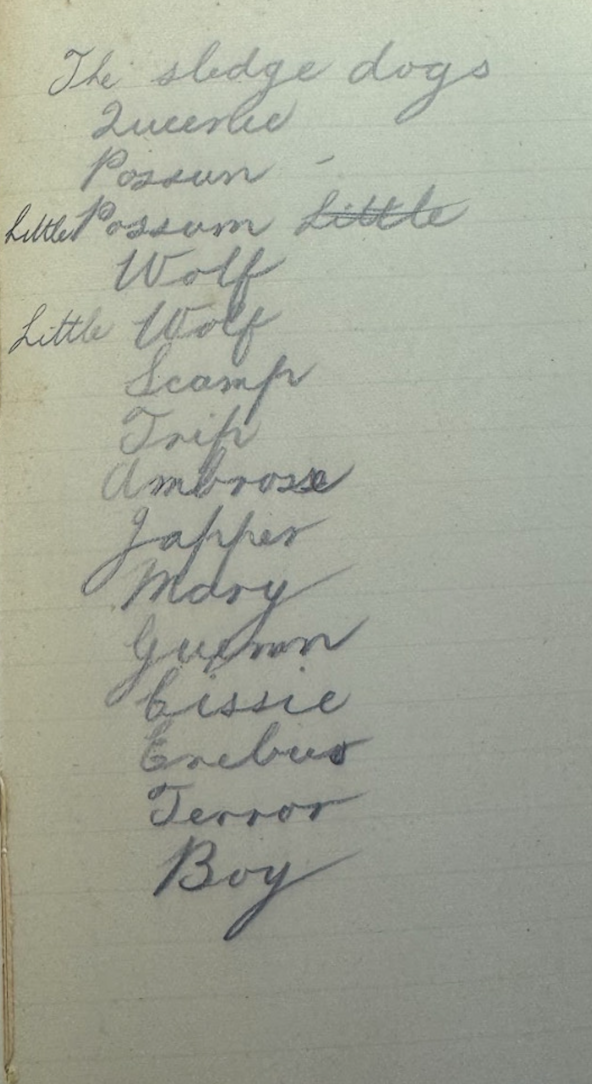 The sledge dogs
Queenie
Possum -
Little Possum ~~Little~~
Wolf
Little Wolf
Scamp
Trip
Ambrose
Japper
Mary
Cissie
Erebus
Terror
Boy